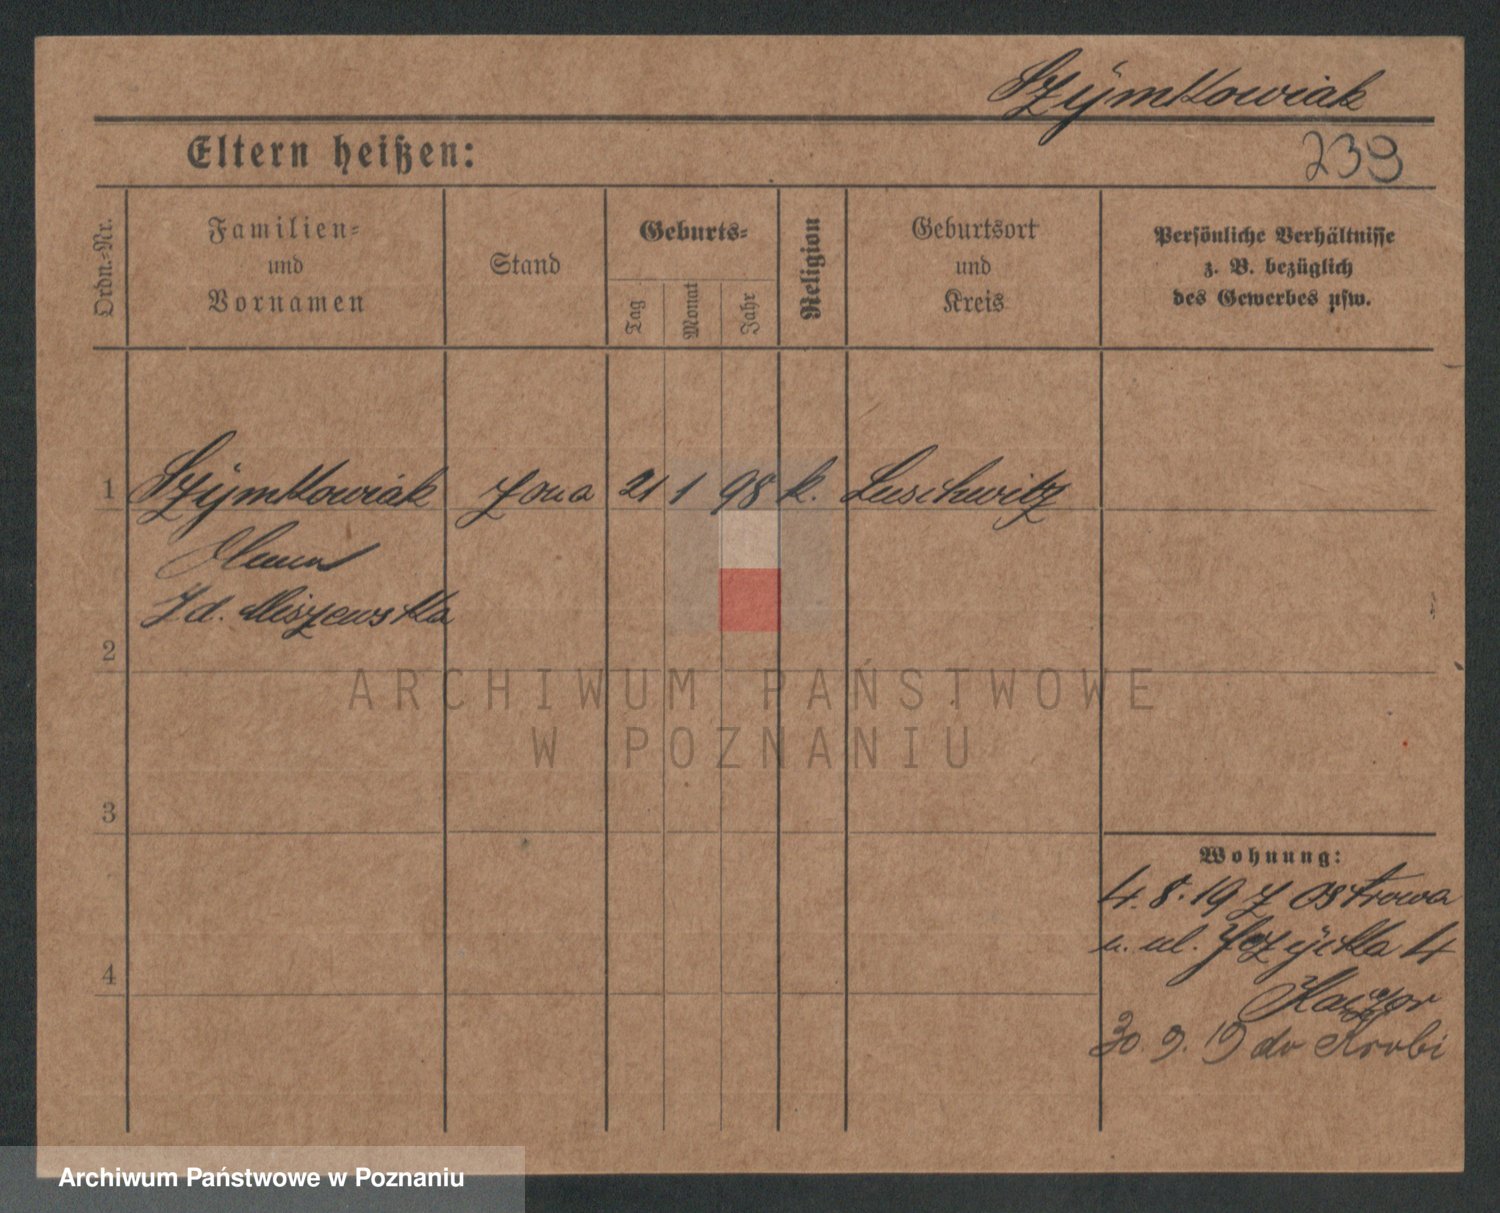 Szymkowiak
239
Eltern heißen:
Ordn.-Nr.
Familien-
und
Vornamen
Stand
Geburts-
Tag
Monat
Jahr
Religion
Geburtsort
und
Kreis
Persönliche Verhältnisse
z. B. bezüglich
des Gewerbes usw.
1 Szymkowiak żona 21 1 98 k. Luschwitz
Zd. Miszewska
2
3
4
Wohnung:
4. 8. 19 z Ostrowa
n. ul. 4
Kaczor
30. 9. 19 do Krobi
ARCHIWUM PAŃSTWOWE
W POZNANIU
Archiwum Państwowe w Poznaniu